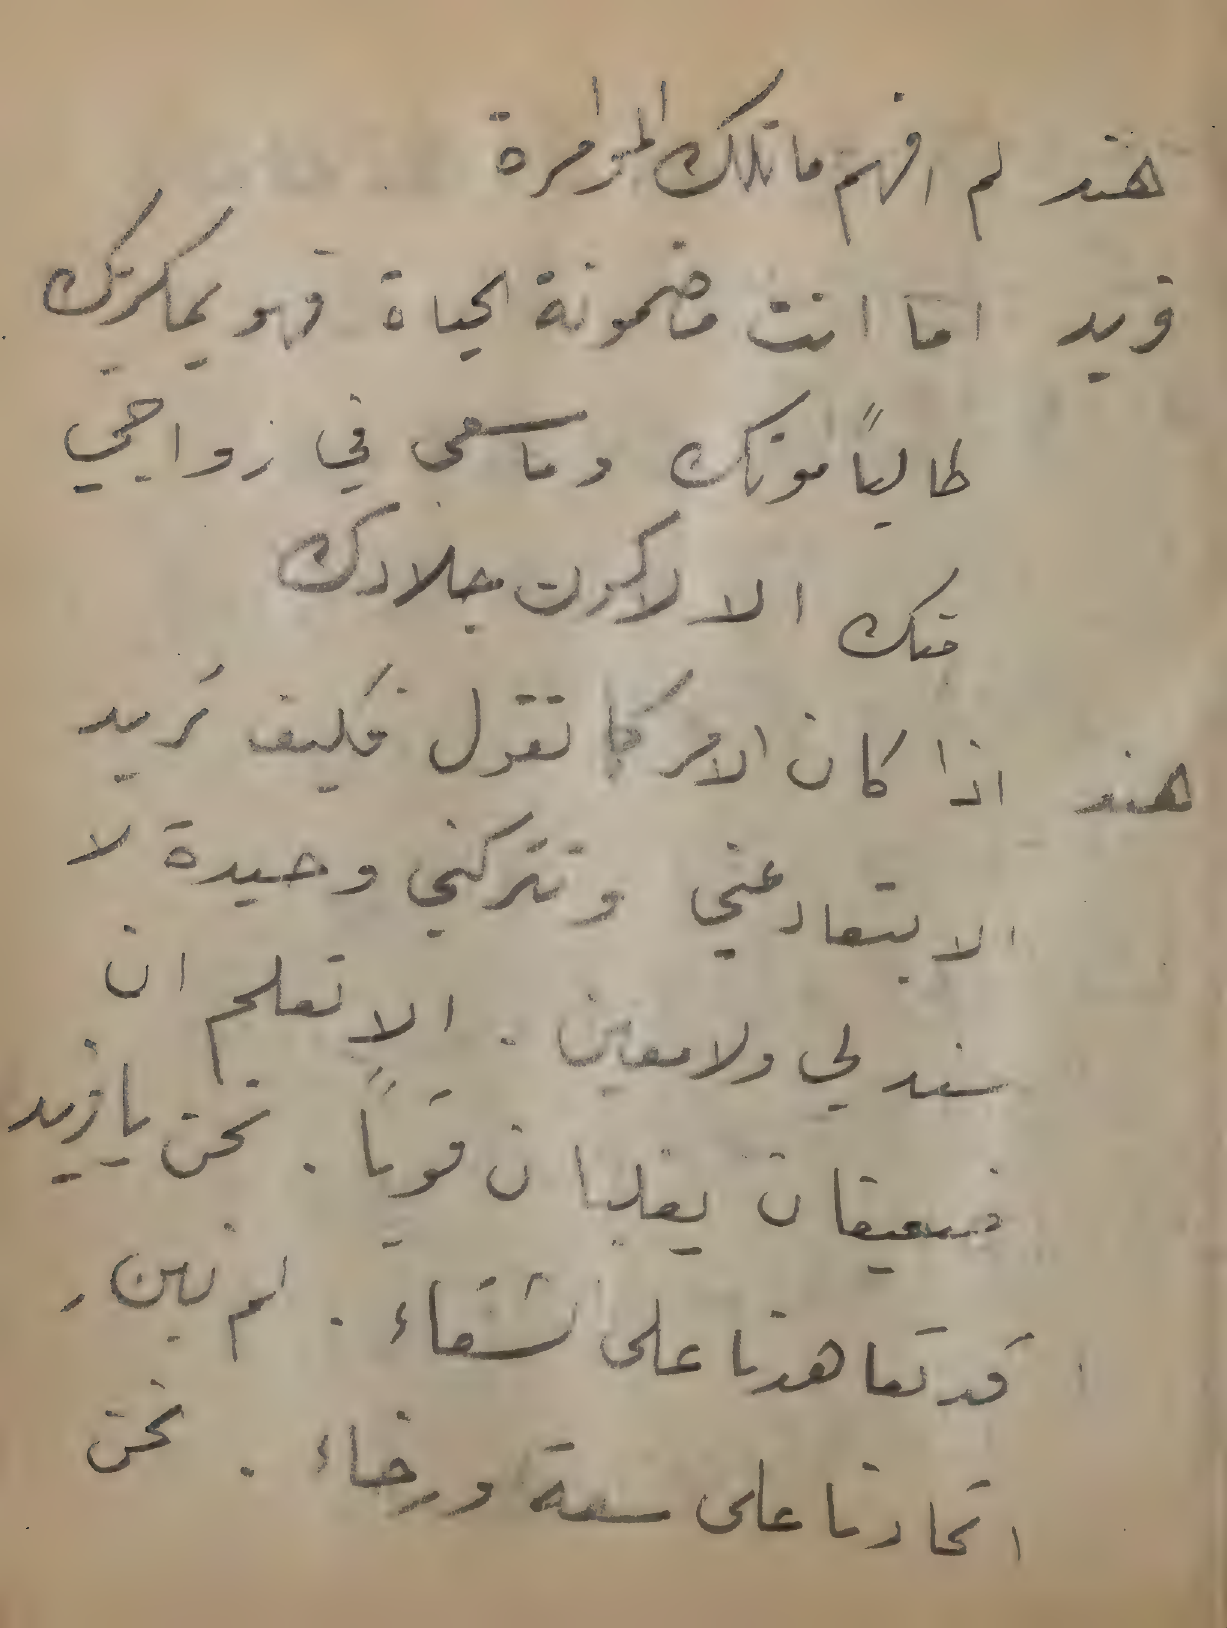 هند لم افهم ما تلك الموامرة
فريد اما انت مضمونة الحياة فهو يمكر بك
طالباً موتك وما سعى في زواجي
منك الا لاكون جلادك
هند اذا كان الامر كما تقول فكيف تريد
الابتعاد عني وتتركني وحيدة لا
سند لي ولا معين . الا تعلم ان
ضعيفان يغلبان قوياً . نحن يا فريد
قد تعاهدنا على الشقاء . لم نبن
اتحادنا على سعة ورخاء . نحن